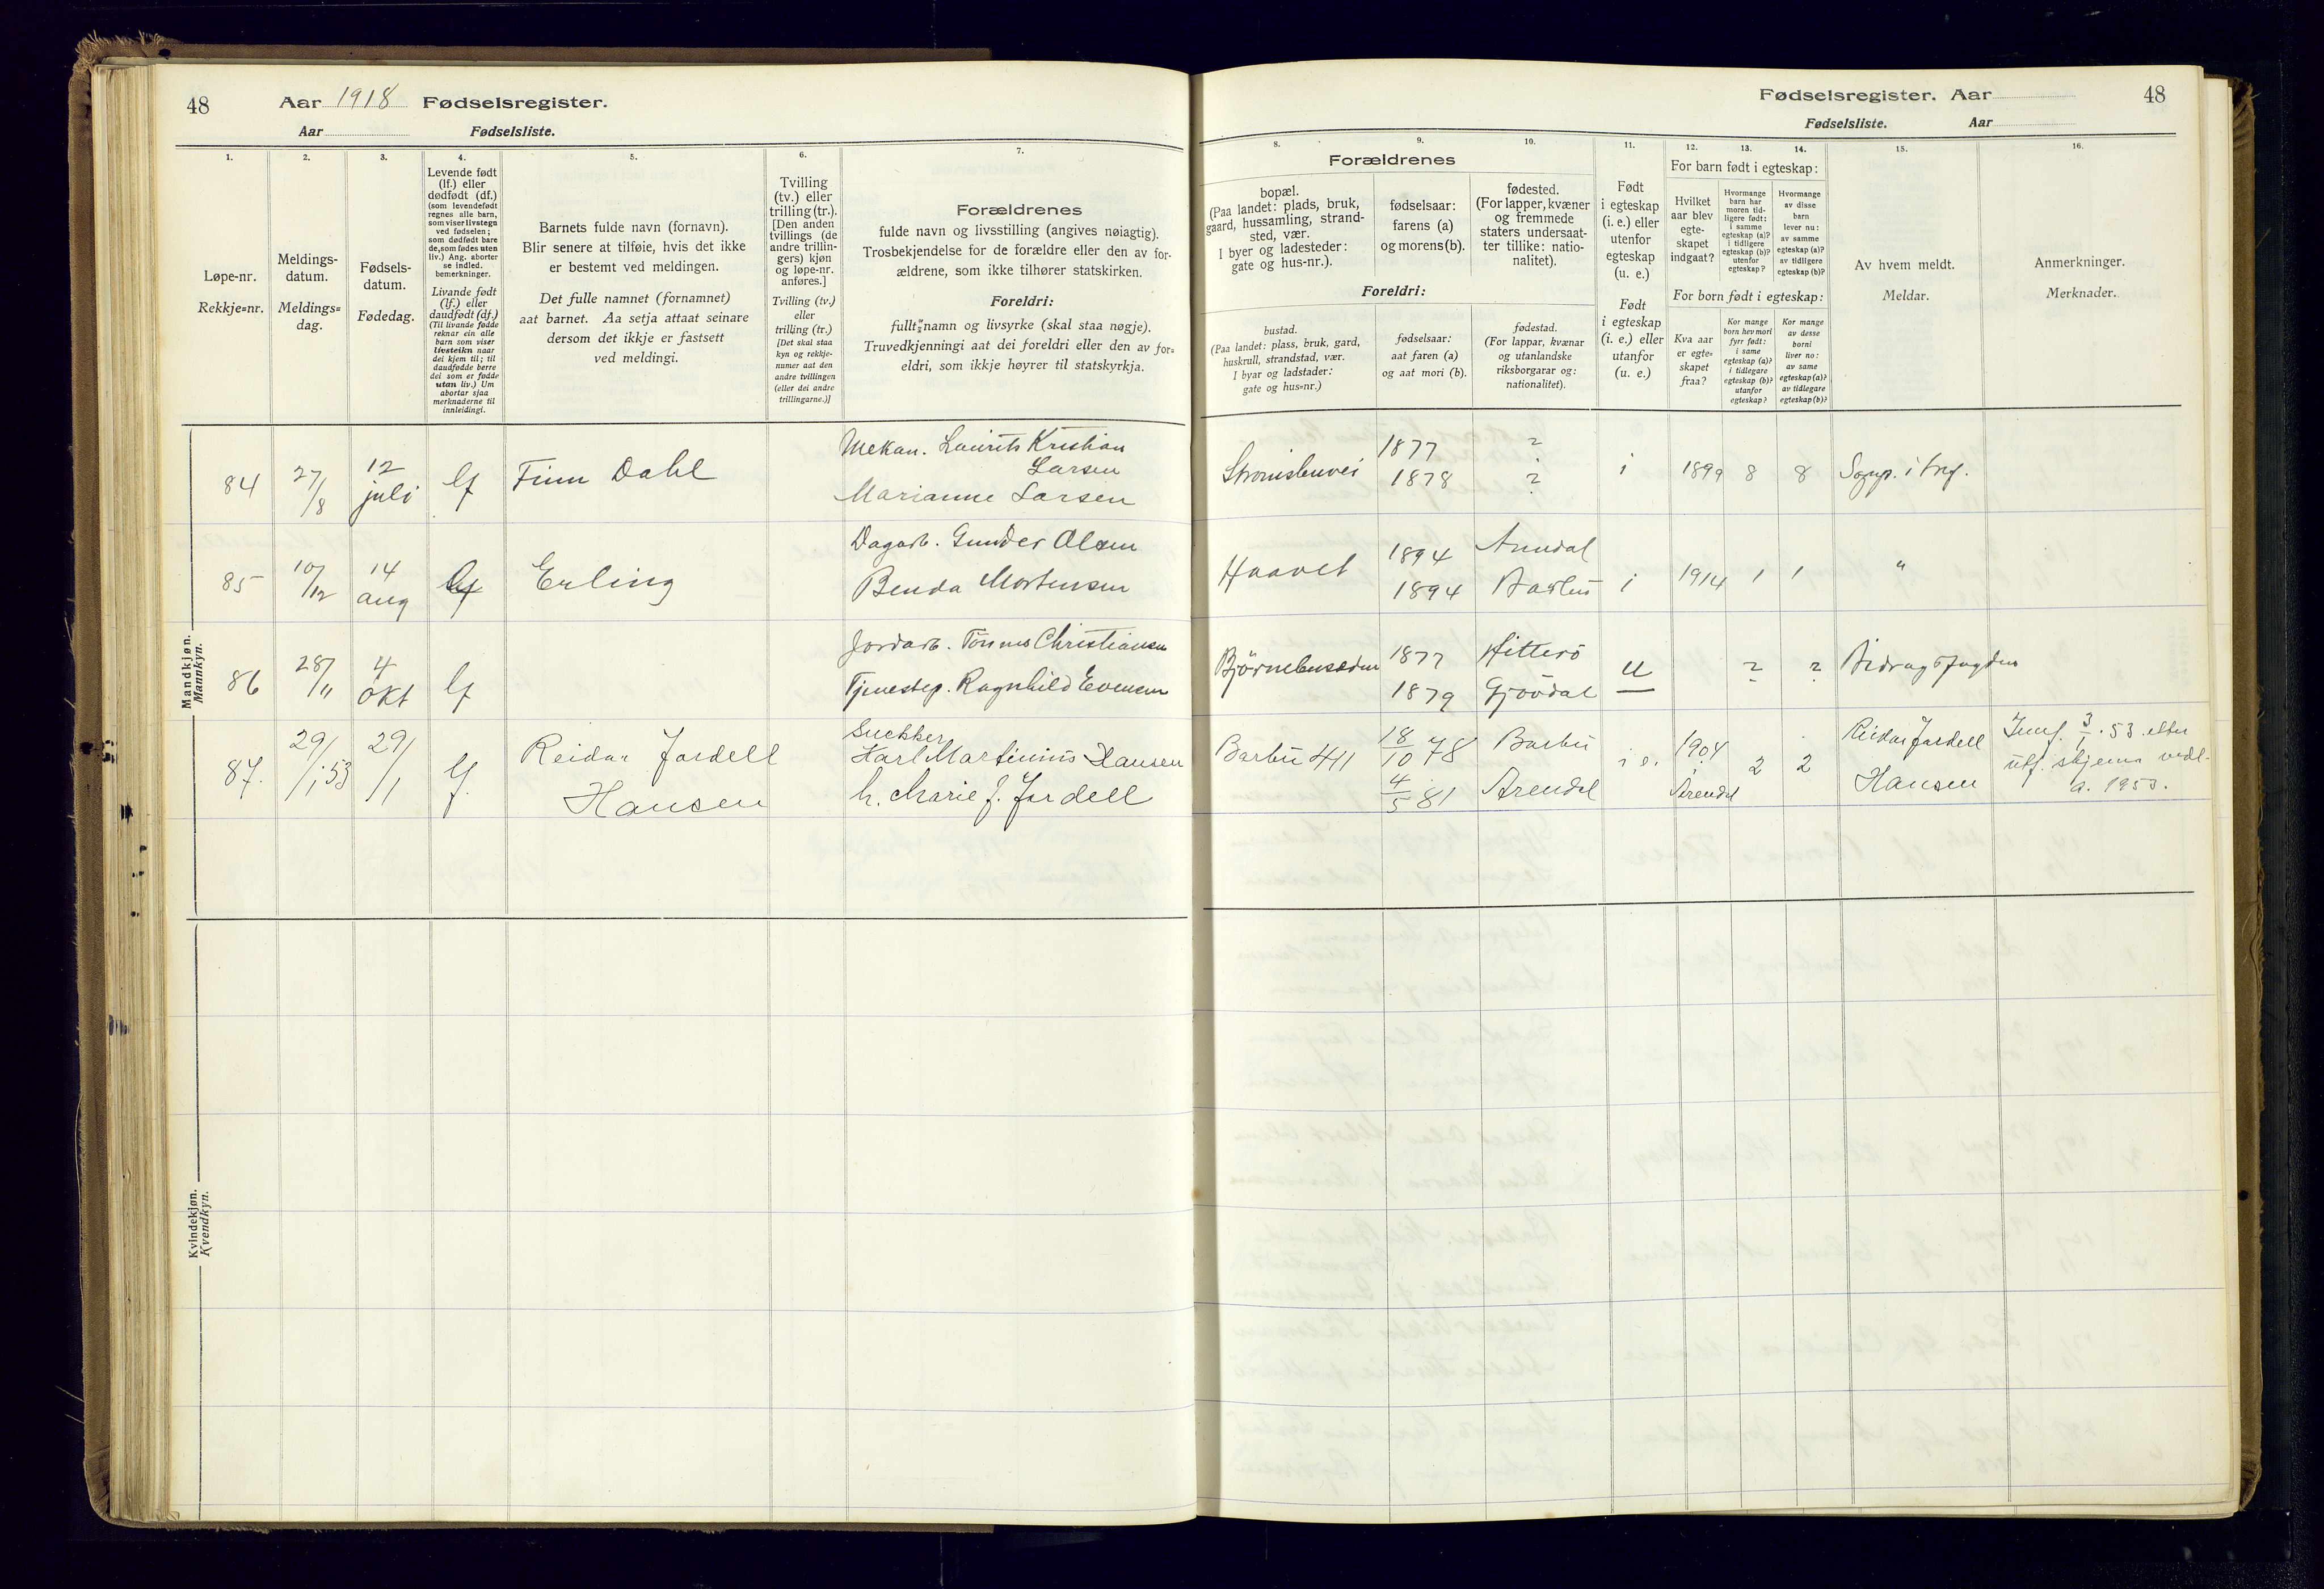 48 Aar 1918 Fødselsregister.
Aar Fødselsliste.
Fødselsregister. Aar 48
Fødselsliste. Aar
1. 2. 3. 4. 5. 6. 7.
Løpe-nr.
Rekkje=nr.
Meldings-
datum.
Meldings=
dag.
Fødsels-
datum.
Fødedag.
Levende født
(lf.) eller
dødfødt (df.)
(som levendefødt
regnes alle barn,
som viser livstegn
ved fødselen;
som dødfødt bare
de, som fødes uten
liv.) Ang. aborter
se indled.
bemerkninger.
Livande født
(lf.) eller
daudfødt (df.)
(Til livande fødde
reknar ein alle
barn som viser
livsteikn naar
dei kjem til; til
daudfødde berre
dei som er fødde
utan liv.) Um
abortar sjaa
merknaderne til
innleidingi.
Barnets fulde navn (fornavn).
Blir senere at tilføie, hvis det ikke
er bestemt ved meldingen.
Det fulle namnet (fornamnet)
aat barnet. Aa setja attaat seinare
dersom det ikkje er fastsett
ved meldingi.
Tvilling
(tv.) eller
trilling (tr.).
[Den anden
tvillings (de
andre trillin-
gers) kjøn
og løpe-nr.
anføres.]
Tvilling (tv.)
eller
trilling (tr.)
[Det skal staa
kyn og rekkje-
numer aat den
andre tvillingen
(eller dei andre
trillingarne.)]
Forældrenes
fulde navn og livsstilling (angives nøiagtig).
Trosbekjendelse for de forældre eller den av for-
ældrene, som ikke tilhører statskirken.
Foreldri:
fullt namn og livsyrke (skal staa nøgje).
Truvedkjenningi aat dei foreldri eller den av for=
eldri, som ikkje høyrer til statskyrkja.
8. 9. 10. 11. 12. 13. 14. 15. 16.
Forældrenes
bopæl.
(Paa landet: plads, bruk,
gaard, hussamling, strand-
sted, vær.
I byer og ladesteder:
gate og hus-nr.).
fødselsaar:
farens (a)
og morens (b).
fødested.
(For lapper, kvæner
og fremmede
staters undersaat-
ter tillike: natio-
nalitet).
Foreldri:
bustad.
(Paa landet: plass, bruk, gard,
huskrull, strandstad, vær.
I byar og ladstader:
gate og hus=nr.)
fødselsaar:
aat faren (a)
og aat mori (b).
fødestad.
(For lappar, kvænar
og utanlandske
riksborgarar og:
nationalitet).
Født
i egteskap
(i. e.) eller
utenfor
egteskap
(u. e.)
Født
i egteskap
(i. e.) eller
utanfor
(u. e.)
For barn født i egteskap:
Hvilket
aar blev
egte-
skapet
indgaat?
Hvormange
barn har
moren tid-
ligere født:
i samme
egteskap (a)?
i tidligere
egteskap (b)?
utenfor
egteskap?
Hvormange
av disse
barn
lever nu:
av samme
egteskap (a)?
av tidligere
egteskap (b)?
For born født i egteskap:
Kva aar
er egte=
skapet
fraa?
Kor mange
born hev mori
fyrr født:
i same
egteskap (a)?
i tidlegare
egteskap (b)?
utanfor
egteskap?
Kor mange
av desse
borni
liver no:
av same
egteskap (a)?
av tidlegare
egteskap (b)?
Av hvem meldt.
Meldar.
Anmerkninger.
Merknader.
Mandkjøn.
Mannkyn.
84 27/8 12 juli lf Finn Dahl Mekan. Laurits Kristian
Larsen
Marianne Larsen
1877 ?
1878 ? i 1899 8 8
85 10/12 14 aug lf Erling Dagarb. Gunder Olsen
Benda Mortensen
Haavet 1894
1894 i 1914 1 1 "
86 28/11 4 okt lf Jordarb. Tönnes Christiansen
Tjenestep. Ragnhild Evensen
1877 Hitterö
1879 Gjövdal u ? ? Bidragsfogden
87. 29/1 53 29/1 lf. Reidar Jardell
Hansen
Snekker
Karl Martinius Hansen
h. Marie f. Jardell
Barbu 411 18/10 78 Barbu
4/5 81 Arendal i e. 1904
Arendal 2 2 Reidar Jardell
Hansen
3/1. 53 etter
utf. skjema vedl.
a. 1953.
Kvindekjøn.
Kvendkyn.